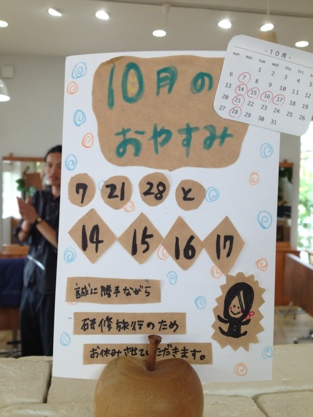 10月の
おやすみ
7 21 28 と
14 15 16 17
誠に勝手ながら
研修旅行のため
お休みさせていただきます。
-10月-
Sun. Mon. Tue. Wed. Thu. Fri. Sat.
1 2 3 4 5
6 7 8 9 10 11 12
13 14 15 16 17 18 19
20 21 22 23 24 25 26
27 28 29 30 31